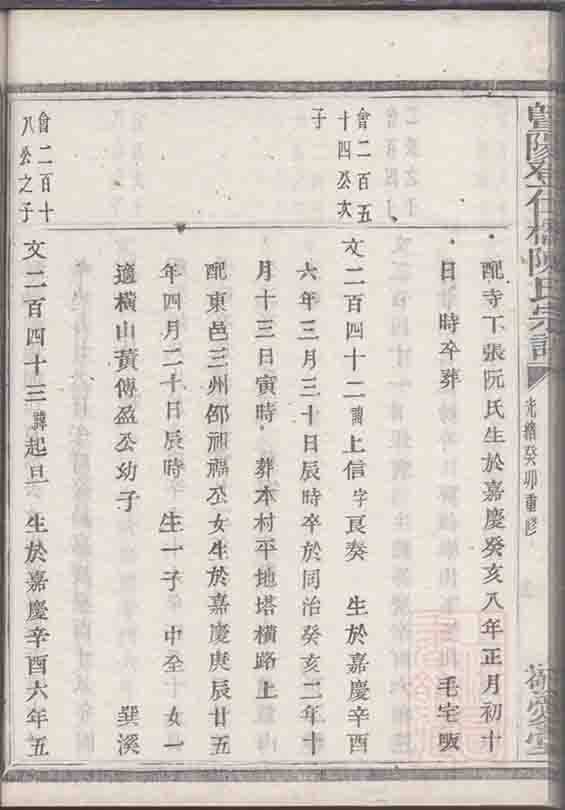 暨陽
橋陳氏宗譜
光緒癸卯重修
愛堂
配寺下張阮氏生於嘉慶癸亥八年正月初十
日 時卒葬 毛宅
會二百五
十四公次
子
文二百四十二諱上信字良奏 生於嘉慶辛酉
六年三月三十日辰時卒於同治癸亥二年十
月十三日寅時 葬本村平地塔橫路上
配東邑三州邵福公女生於嘉慶庚辰廿五
年四月二十日辰時 生一子 中全 女一
適橫山黃傳盈公幼子 巽溪
會二百十
八公之子
文二百四十三諱起旦 生於嘉慶辛酉六年五